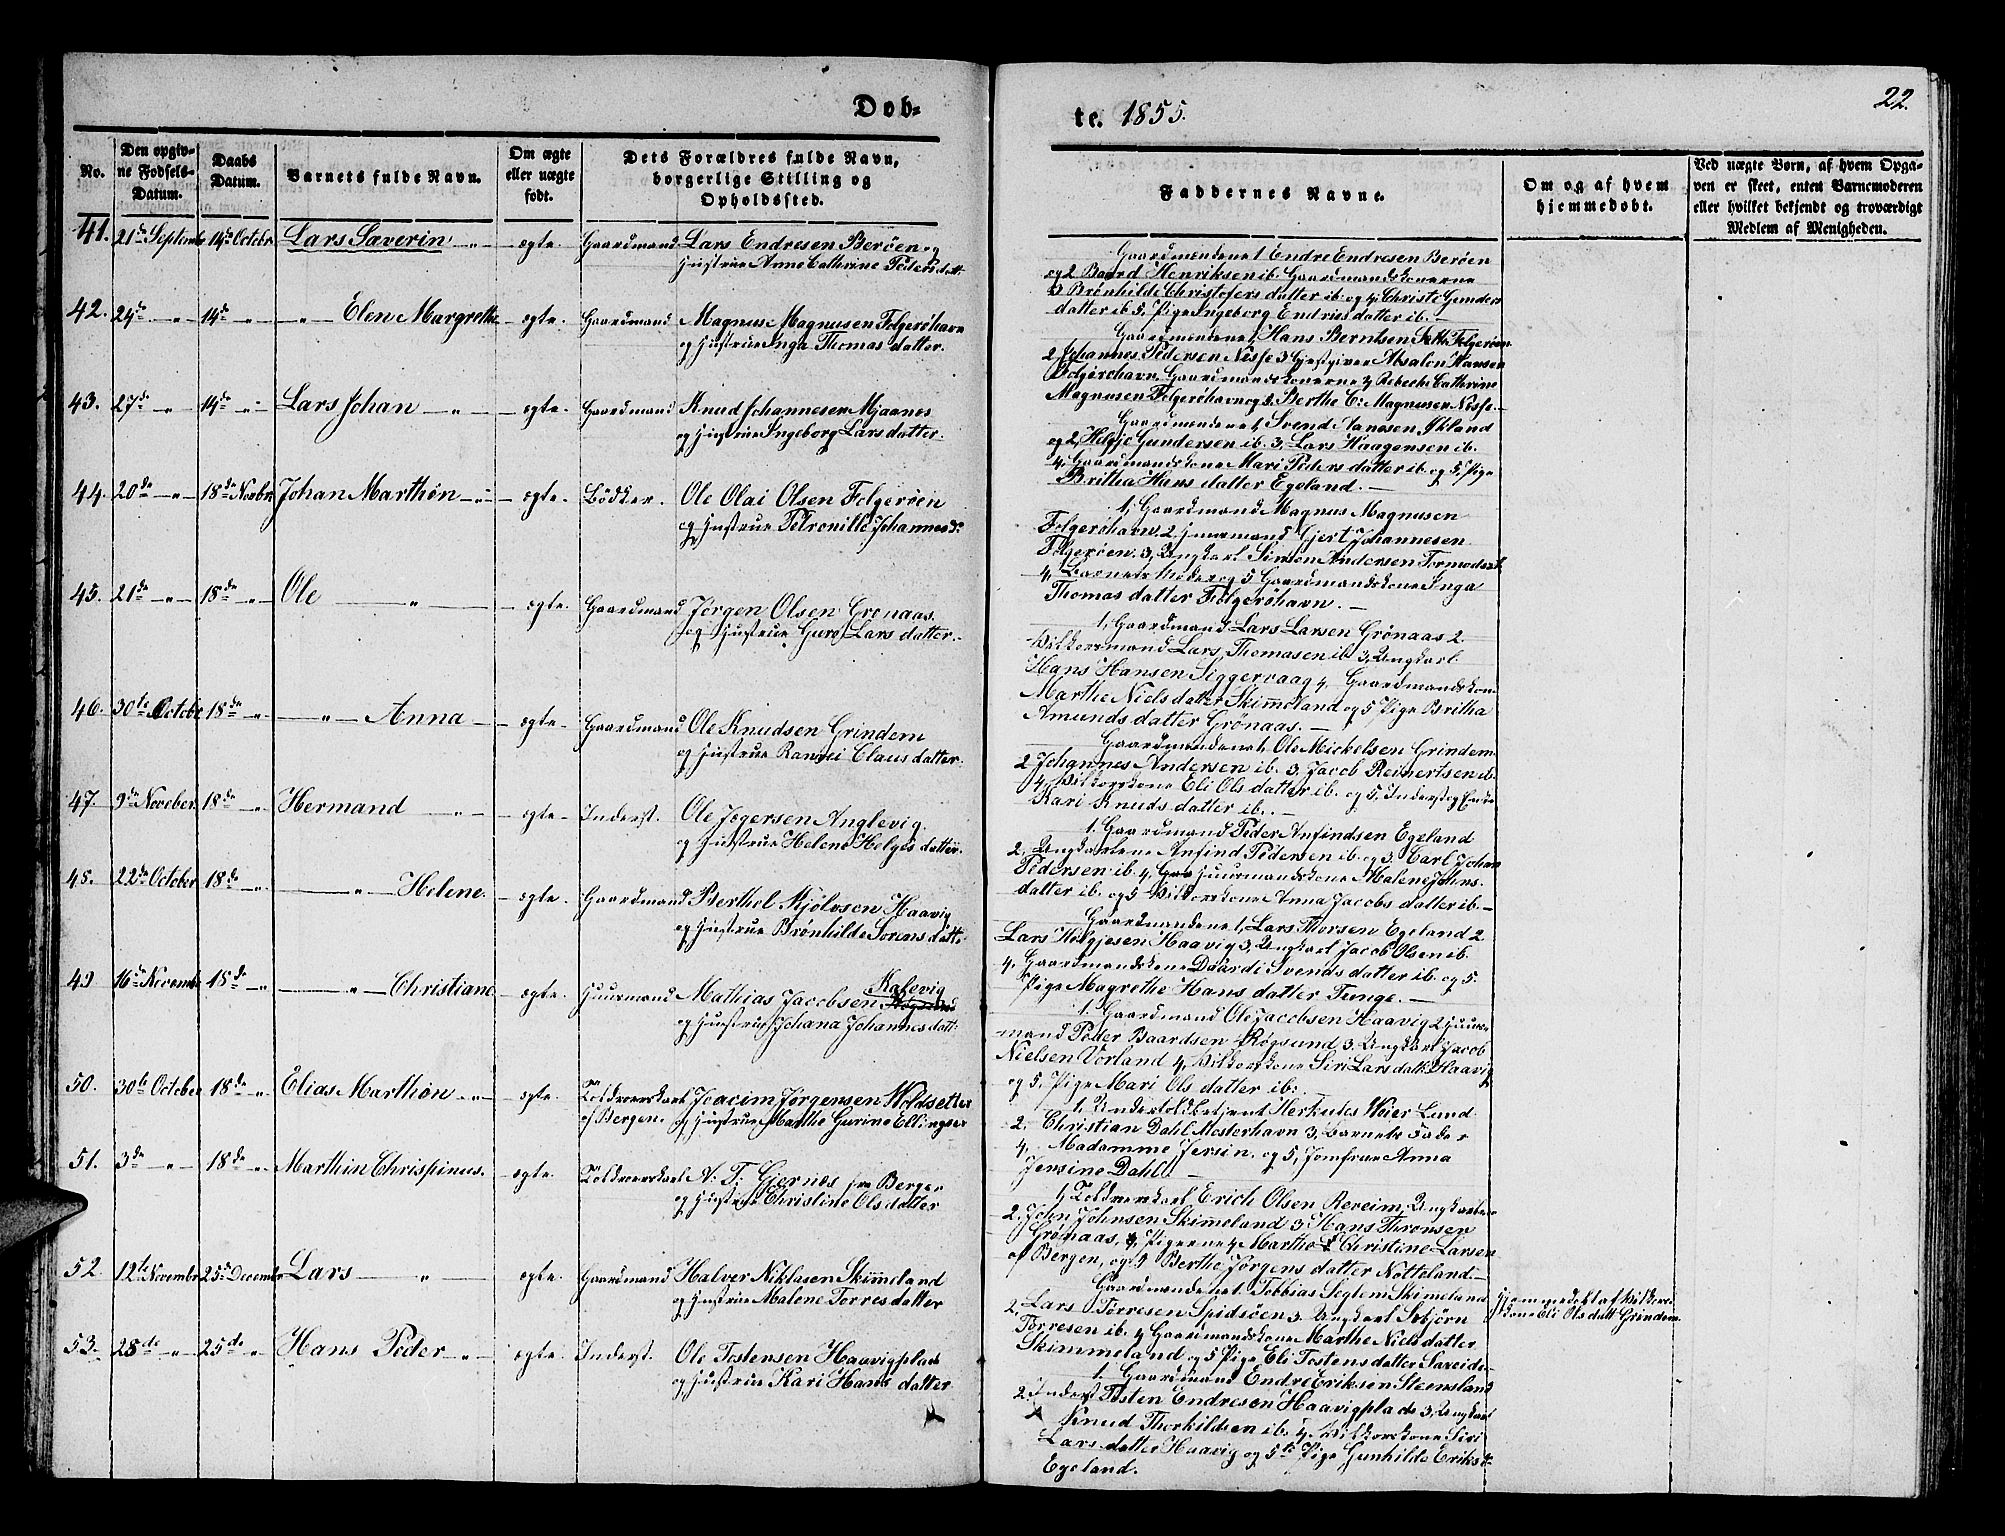 Døb-
No.
Den opgiv-
ne Fødsels-
Datum.
Daabs
Datum.
Barnets fulde Navn.
Om ægte
eller uægte
født.
Dets Forældres fulde Navn,
borgerlige Stilling og
Opholdssted.
41. 21de Septembr 14de Octobr Lars Saverin — " — ægte Gaardmand Lars Endresen Berøen og
Hustrue Anne Cathrine Peders datt
42. 24de — " 14de — " — " — Elen Margrethe — ægte. Gaardmand Magnus Magnusen Folgerøhavn
og Hustrue Inga Thomas datter.
43. 27de — " 14de — " Lars Johan — " — ægte. Gaardmand Knud Johannesen Mjaanes
og Hustrue Ingeborg Lars datter.
44. 20de — " — 18de Novbr Johan Marthøn — " — ægte. Bødker. Ole Olai Olsen Folgerøen
og Hustrue Petronille Johannesd.
45. 21de — " — 18de — " Ole — " — ægte. Gaardmand Jørgen Olsen Grønaas.
og Hustrue Guro Lars datter.
46. 30te Octobr 18de — " — " — Anna — ægte. Gaardmand Ole Knudsen Grindem
og Hustrue Rannei Claus datter.
47. 9de Noveber 18de — " Hermand — " — ægte — Inderst. Ole Jegersen Anglevig
og Hustrue Helene Helges datter.
48. 22de October 18de — " — " — Helene. — ægte. Gaardmand Berthel Mjølvsen Haavig
og Hustrue Brønhilde Sorens datt.
49 16de Novembr 18de — " — " — Christiane — ægte. Huurmand Mathias Jacobsen Kalevig
og Hustrue Johana Johannes datt:
50. 30te October 18de — " Elias Marthøn — " — ægte. Toldroerskarl Joacim Jørgensen Woldsetter
af Bergen. og Hustrue Marthe Gurine Ellingsen
51. 3de — " 18de — " Marthin Chrispinus. ægte. Toldroerskarl A: T: Gjernes fra Bergen
og Hustrue Christine Ols datter
52. 12te Novembr 25de Decembr Lars — " — ægte. Gaardmand Halver Niklasen Skimmeland
og Hustrue Malene Torres datter
53. 28de — " 25de — " Hans Peder — " — ægte — Inderst. Ole Tostensen Haavigplads
og Hustrue Kari Hans datter
te. 1855.
22.
Faddernes Navne.
Om og af hvem
hjemmedøbt.
Ved uægte Børn, af hvem Opga-
ven er skeet, enten Barnemoderen
eller hvilket bekjendt og troværdigt
Medlem af Menigheden.
Gaardmændene 1 Endre Endresen Berøen
og 2 Baard Henriksen ib. Gaardmandskonerne
3 Brønhilde Christofers datter ib. og 4, Christi Gunders
datter ib 5, Pige Ingeborg Endries datter ib. —
Gaardmændene 1, Hans Berntsen Folgerøen
2 Johannes Pedersen Nesse 3 Gjestgiver Absalon Hansen
Folgerøhavn. Gaardmandskonerne 4 Rebecke Cathrine
Magnusen Folgerøhavn og 5. Berthe C: Magnusen Nesse.—
Gaardmændene 1, Svend Aanesen Økland
og 2, Helge Gundersen ib. 3, Lars Haagensen ib.
4, Gaardmandskone Mari Peders datter ib. og 5, Pige
Britha Hans datter Egeland. —
1, Gaardmand Magnus Magnusen
Folgerøhavn 2 Huurmand Gjert Johannesen
Folgerøen. 3, Ungkarl Simon Andersen Tormodsæt
4, Barnets Moder og 5 Gaardmandskone Inga
Thomas datter Folgerøhavn. —
1, Gaardmand Lars Larsen Grønaas 2
Vilkorsmand Lars Thomasen ib 3, Ungkarl.
Hans Hansen Siggervaag 4, Gaardmandskon
Marthe Niels datter Skimmeland og 5 Pige Britha
Amunds datter Grønaas. —
Gaardmændene 1, Ole Mickelsen Grindem
2 Johannes Andersen ib. 3, Jacob Reinertsen ib.
4, Vilkorskone Eli Ols datter ib. og 5, Inderst
Kari Knuds datter ib. —
1. Gaardmand Peder Anfindsen Egeland
2, Ungkarlene Anfind Pedersen ib. og 3, Carl Johan
Pedersen ib. 4, Huurmandskone Malene Johns.
datter ib. og 5 Vilkorskone Anna Jacobs datter ib. —
Gaardmændene 1, Lars Thorsen Egeland 2
Lars Helgjesen Haavig 3, Ungkarl Jacob Olsen ib.
4, Gaardmandskone Daardi Svends datter ib. og 5.
Pige Magrethe Hans datter Tunge. —
1, Gaardmand Ole Jacobsen Haavig 2 Huur-
mand Peder Baardsen Røgsund 3. Ungkarl Jacob
Nielsen Vorland 4, Vilkorskone Siri Lars datt. Haavig
og 5, Pige Mari Ols datter ib. —
1, Undertoldbetjent Herkules Weier Lund
2. Christian Dahl Mosterhavn 3, Barnets Fader
4. Madamme Jersin. og 5, Jomfrue Anna
Jensine Dahl. —
1, Toldroerskarl Erich Olsen Røreim, Ungkarlene
2. John Johnsen Skimmeland 3 Hans Thronsen
Grønaas, Pigerne 4 Marthe Christine Larsen
af Bergen, og 5 Berthe Jørgens datter Notteland. —
Gaardmændene 1. Tobbias Seglem Skimeland
2. Lars Torresen Spidsøen 3. Ungkarl Asbjørn
Torresen ib. 4 Gaardmandskone Marthe Niels datter
Skimmeland og 5 Pige Eli Tostens datter Sæveide —
hjemmedøbt af Vilkors-
kone Eli Ols datt Grindem
1. Gaardmand Endre Eriksen Steensland
2. Inderst Tosten Endresen Haavigplads 3, Ungkarl
Knud Thorkildsen ib. 4, Vilkorskone Siri
Lars datter Haavig og 5te Pige Gunhilde Eriks d.
Egeland.